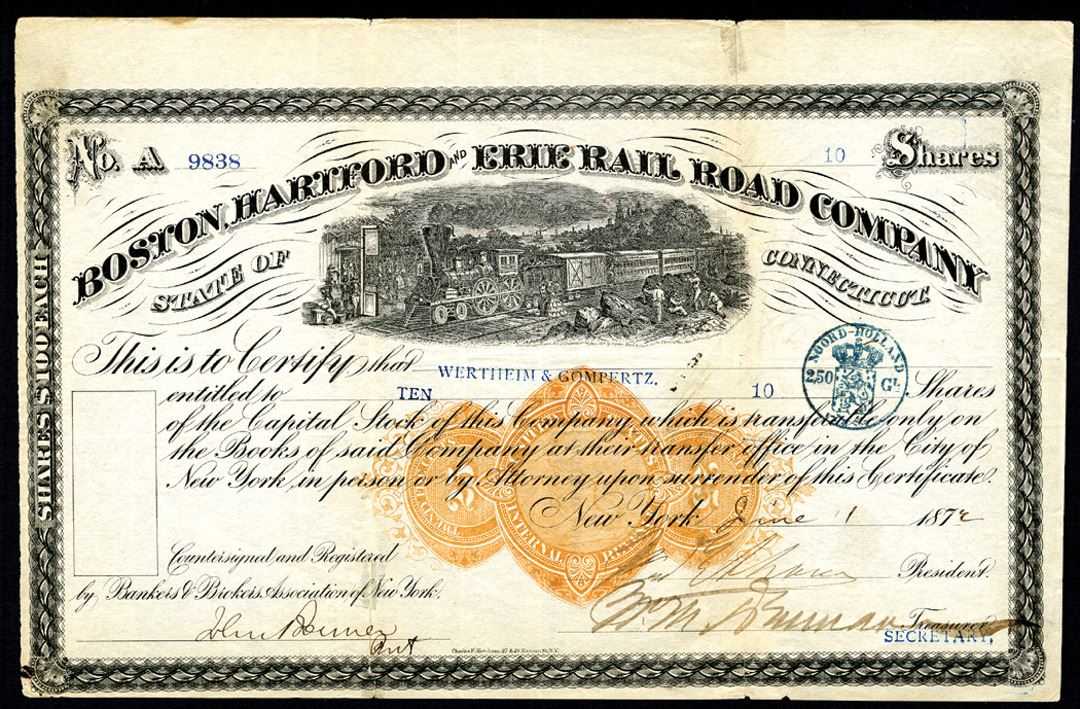 No. A 9838
10 Shares
BOSTON, HARTFORD AND ERIE RAIL ROAD COMPANY
STATE OF CONNECTICUT
SHARES $100 EACH
This is to Certify that WERTHEIM & GOMPERTZ.
entitled to TEN 10 Shares
of the Capital Stock of this Company, which is transferable only on
the Books of said Company at their transfer office in the City of
New York, in person or by Attorney upon surrender of this Certificate.
NOORD-HOLLAND
250 Gl.
25
INTERNAL
New York June 1 1872
Countersigned and Registered
by Bankers & Brokers Association of New York.
President.
Treasurer.
SECRETARY.
Charles F. Ketcham, 27 & 29 Nassau St. N.Y.